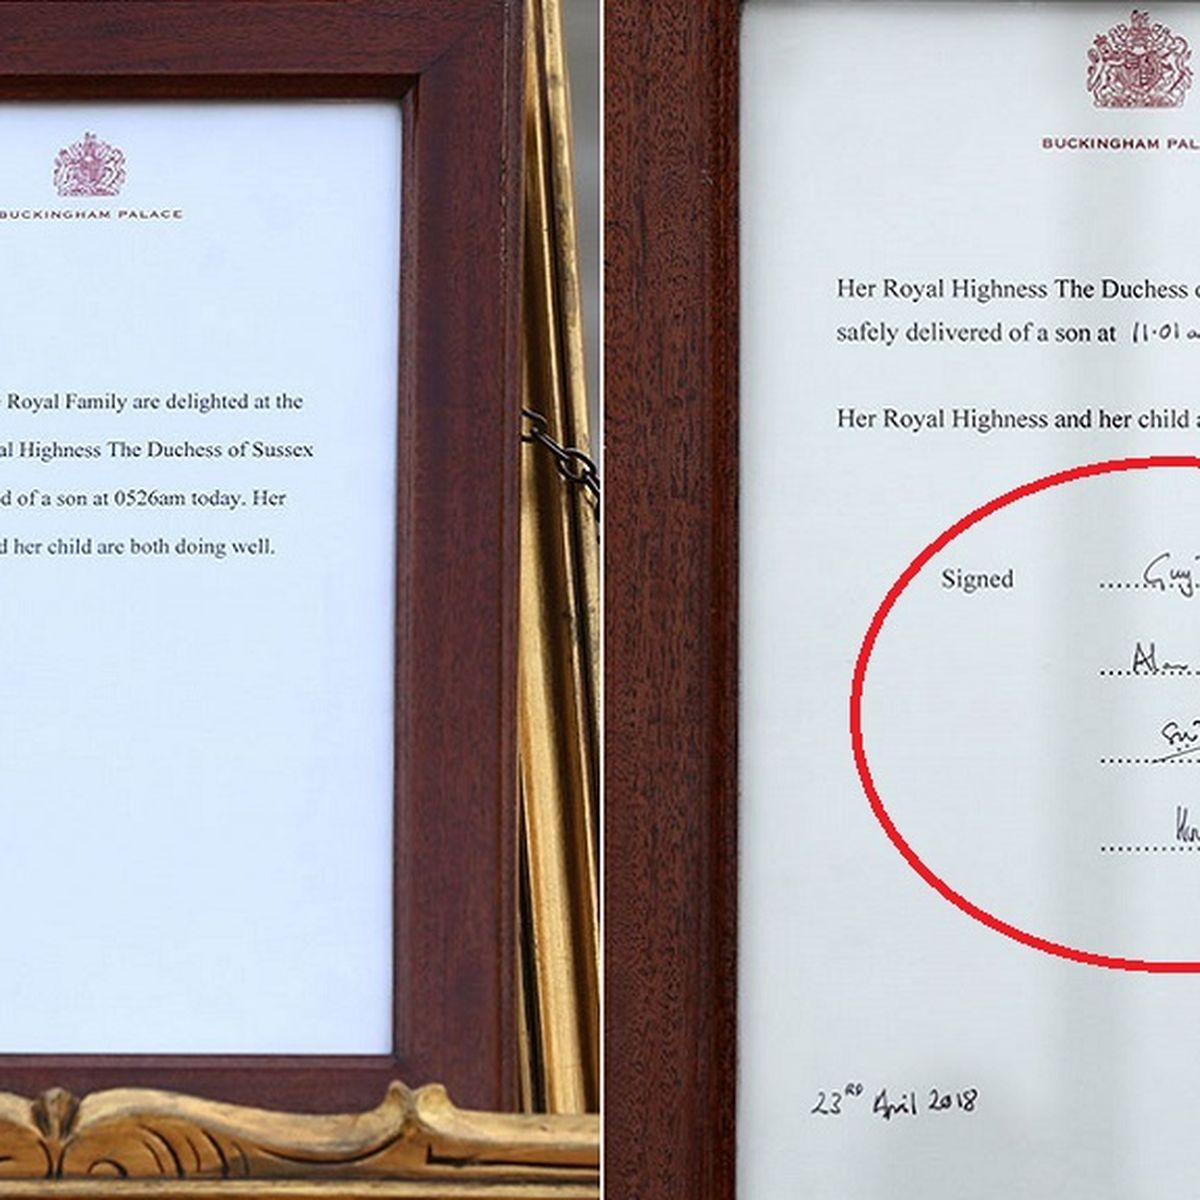 BUCKINGHAM PALACE
Royal Family are delighted at the
al Highness The Duchess of Sussex
d of a son at 0526am today. Her
d her child are both doing well.
BUCKINGHAM PAL
Her Royal Highness The Duchess o
safely delivered of a son at 11.01 a
Her Royal Highness and her child a
Signed
Guy
Alan
23RD April 2018